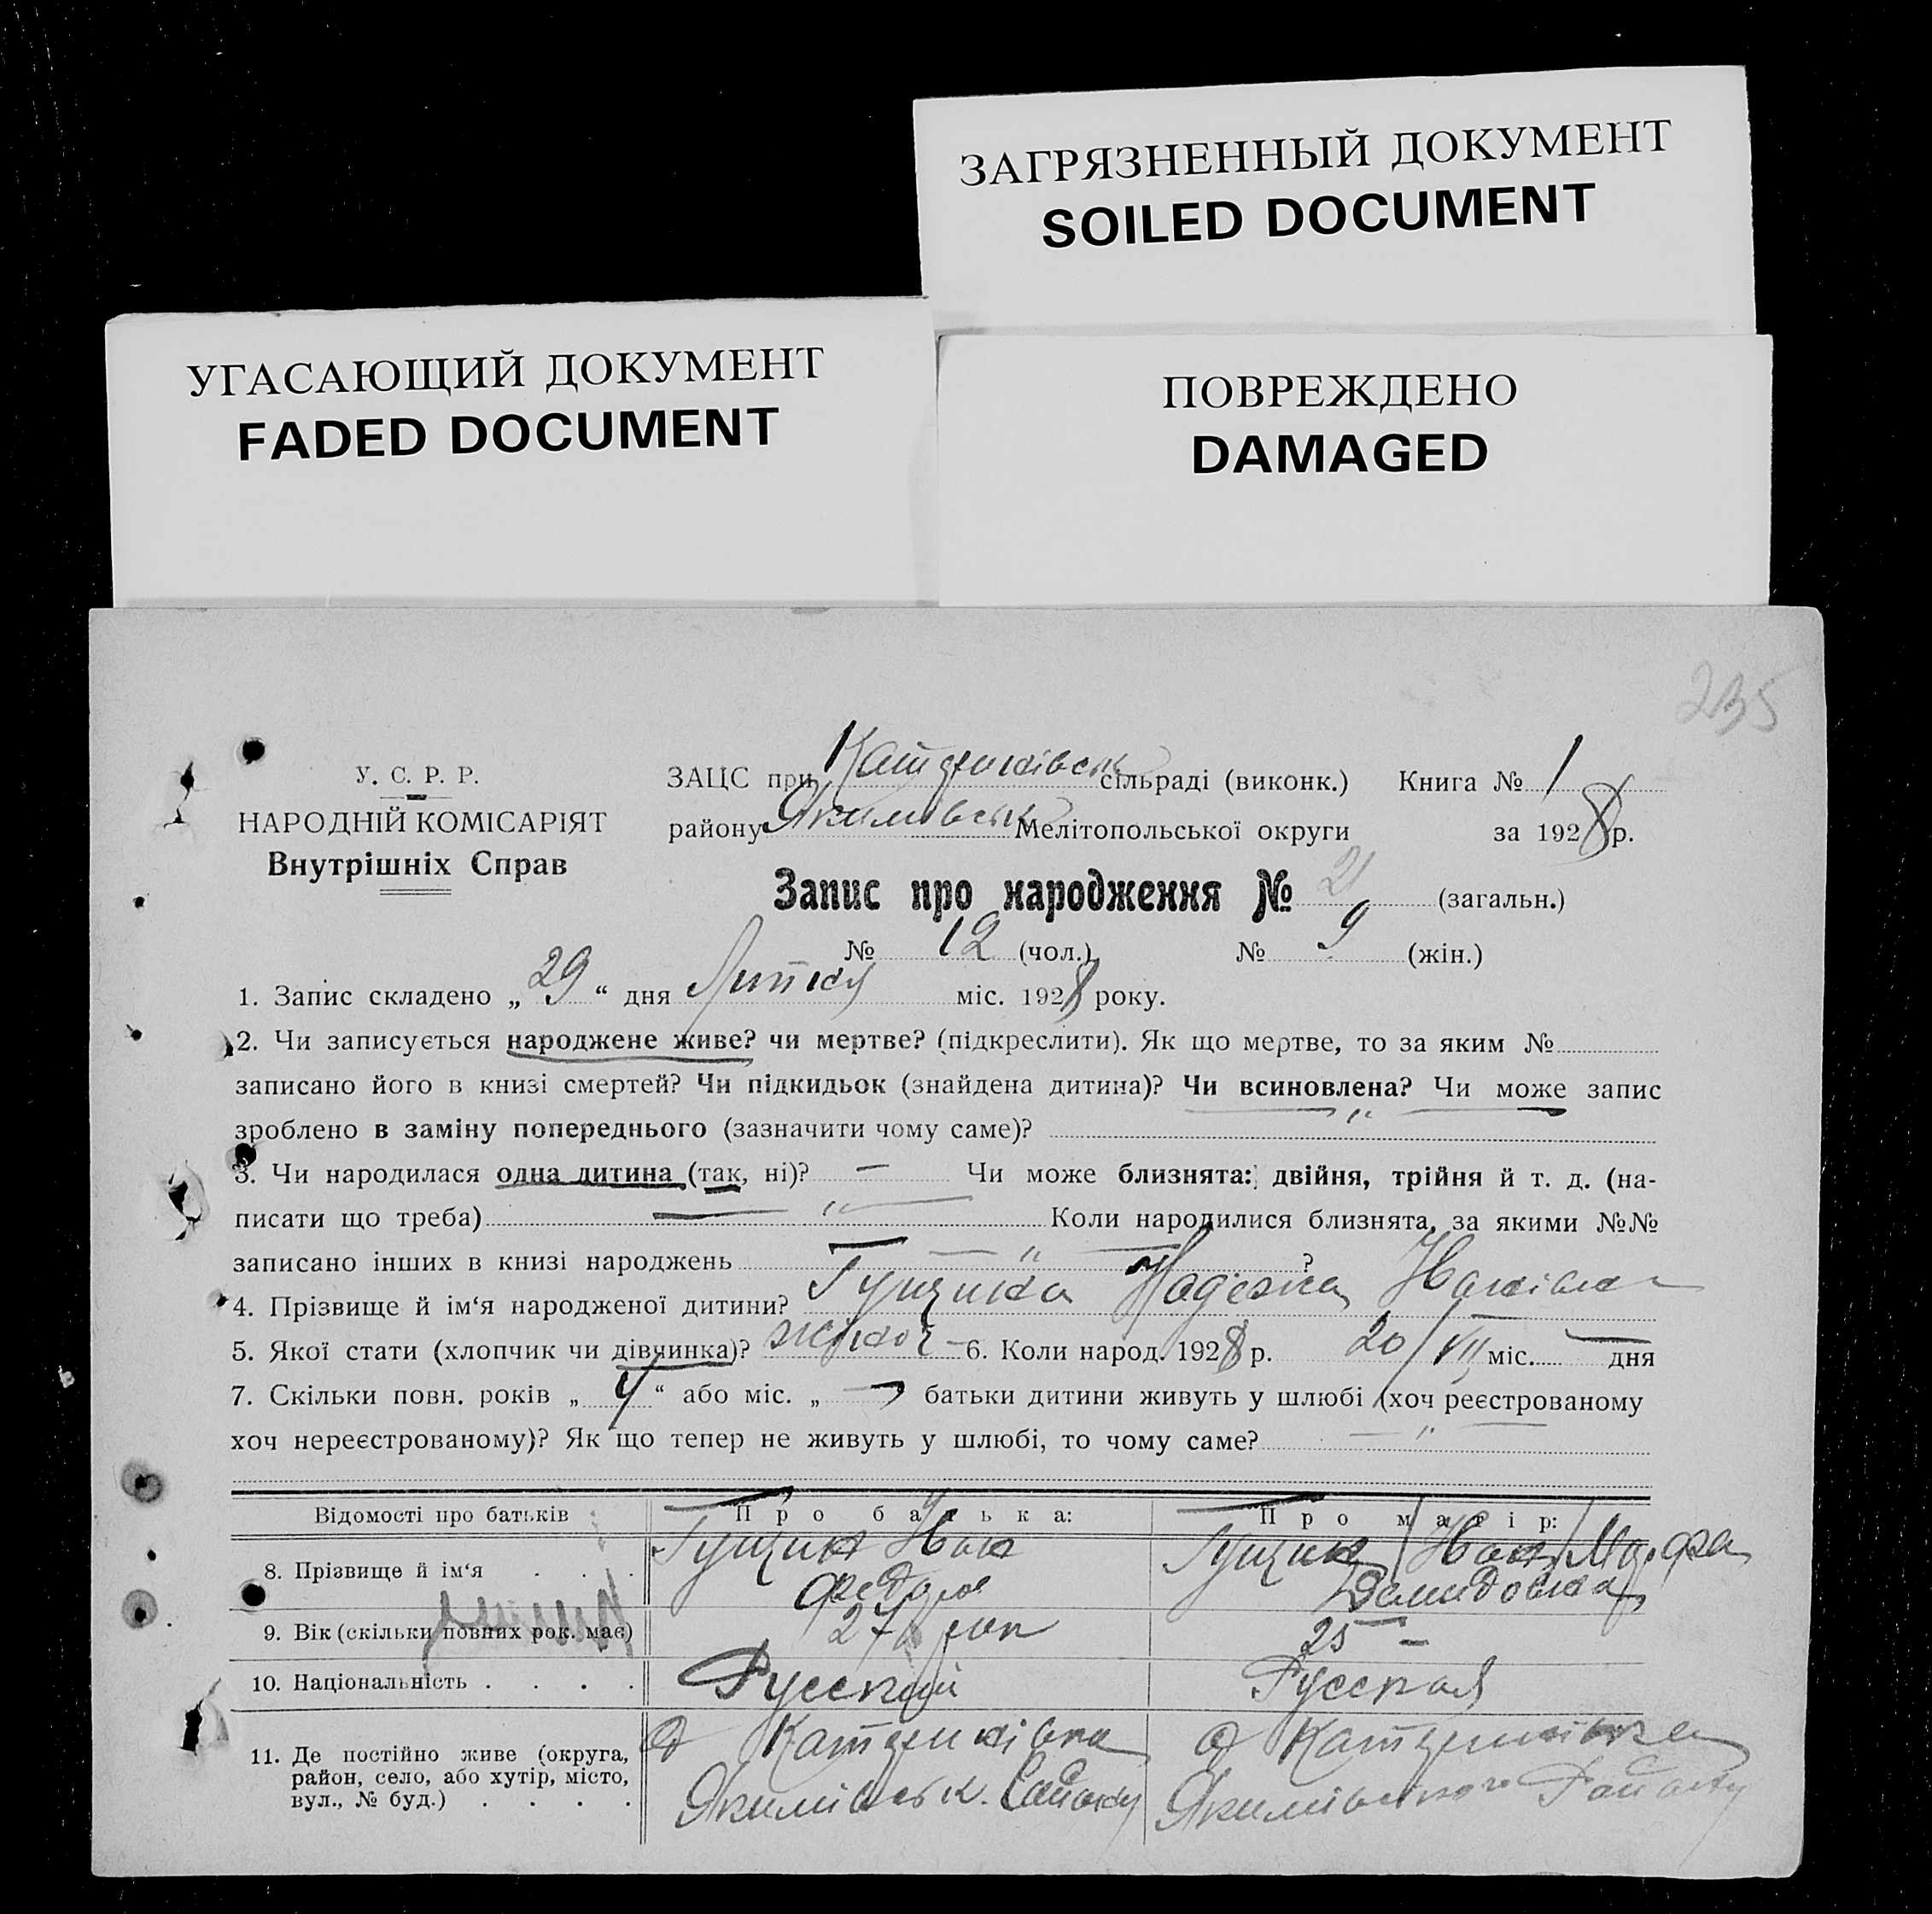 ЗАГРЯЗНЕННЫЙ ДОКУМЕНТ
SOILED DOCUMENT
УГАСАЮЩИЙ ДОКУМЕНТ
FADED DOCUMENT
ПОВРЕЖДЕНО
DAMAGED
235
У. С. Р. Р.
НАРОДНІЙ КОМІСАРІЯТ
Внутрішніх Справ
ЗАЦС при сільраді (виконк.) Книга № 1
району Якимівськ Мелітопольської округи за 1928 р.
Запис про народження № 21 (загальн.)
№ 12 (чол.) № 9 (жін.)
1. Запис складено „ 29 “ дня Липня міс. 1928 року.
2. Чи записується народжене живе? чи мертве? (підкреслити). Як що мертве, то за яким №
записано його в книзі смертей? Чи підкидьок (знайдена дитина)? Чи всиновлена? Чи може запис
зроблено в заміну попереднього (зазначити чому саме)?
3. Чи народилася одна дитина (так, ні)? — Чи може близнята: двійня, трійня й т. д. (на-
писати що треба) — „ — Коли народилися близнята, за якими №№
записано інших в книзі народжень — „ — ?
4. Прізвище й ім‘я народженої дитини? Надежда
5. Якої стати (хлопчик чи дівчинка)? 6. Коли народ. 1928 р. 20/VII міс. — дня
7. Скільки повн. років „ 4 “ або міс. „ — батьки дитини живуть у шлюбі (хоч реєстрованому
хоч нереєстрованому)? Як що тепер не живуть у шлюбі, то чому саме? — „ —
Відомості про батьків Про батька: Про матір:
8. Прізвище й ім‘я . . . Иван Марфа
Федоров Демидовна
9. Вік (скільки повних рок. має) 27 рок 25 —
10. Національність . . . . Русский Русская
11. Де постійно живе (округа,
район, село, або хутір, місто,
вул., № буд.) . . . . Якимівськ. Району Якимівського Району